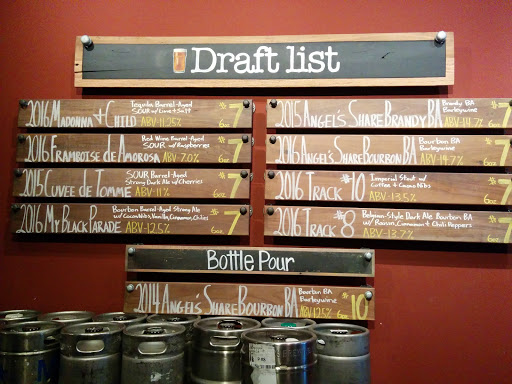 Draft list
2016 Madonna + Child
Tequila Barrel-Aged
SOUR w/Lime + Salt
ABV-11.25%
$7
6oz
2016 Framboise de Amorosa
Red Wine Barrel-Aged
SOUR w/Raspberries
ABV 7.0%
$7
6oz
2015 Cuvee de Tomme
SOUR Barrel-Aged
Strong Dark Ale w/Cherries
ABV-11%
$7
6oz
2016 My Black Parade
Bourbon Barrel-Aged Strong Ale
w/Cocoa Nibs, Vanilla, Cinnamon, Chilies
ABV-12.5%
$7
6oz
2015 Angel's Share Brandy BA
Brandy BA
Barleywine
ABV-14.7%
$7
6oz
2016 Angel's Share Bourbon BA
Bourbon BA
Barleywine
ABV-14.7%
$7
6oz
2016 Track #10
Imperial Stout w/
Coffee + Cocoa Nibs
ABV-13.5%
$7
6oz
2016 Track #8
Belgian-Style Dark Ale Bourbon BA
w/Raisin, Cinnamon + Chili Peppers
ABV-13.7%
$7
6oz
Bottle Pour
2014 Angel's Share Bourbon BA
Bourbon BA
Barleywine
ABV-12.5%
$10
6oz